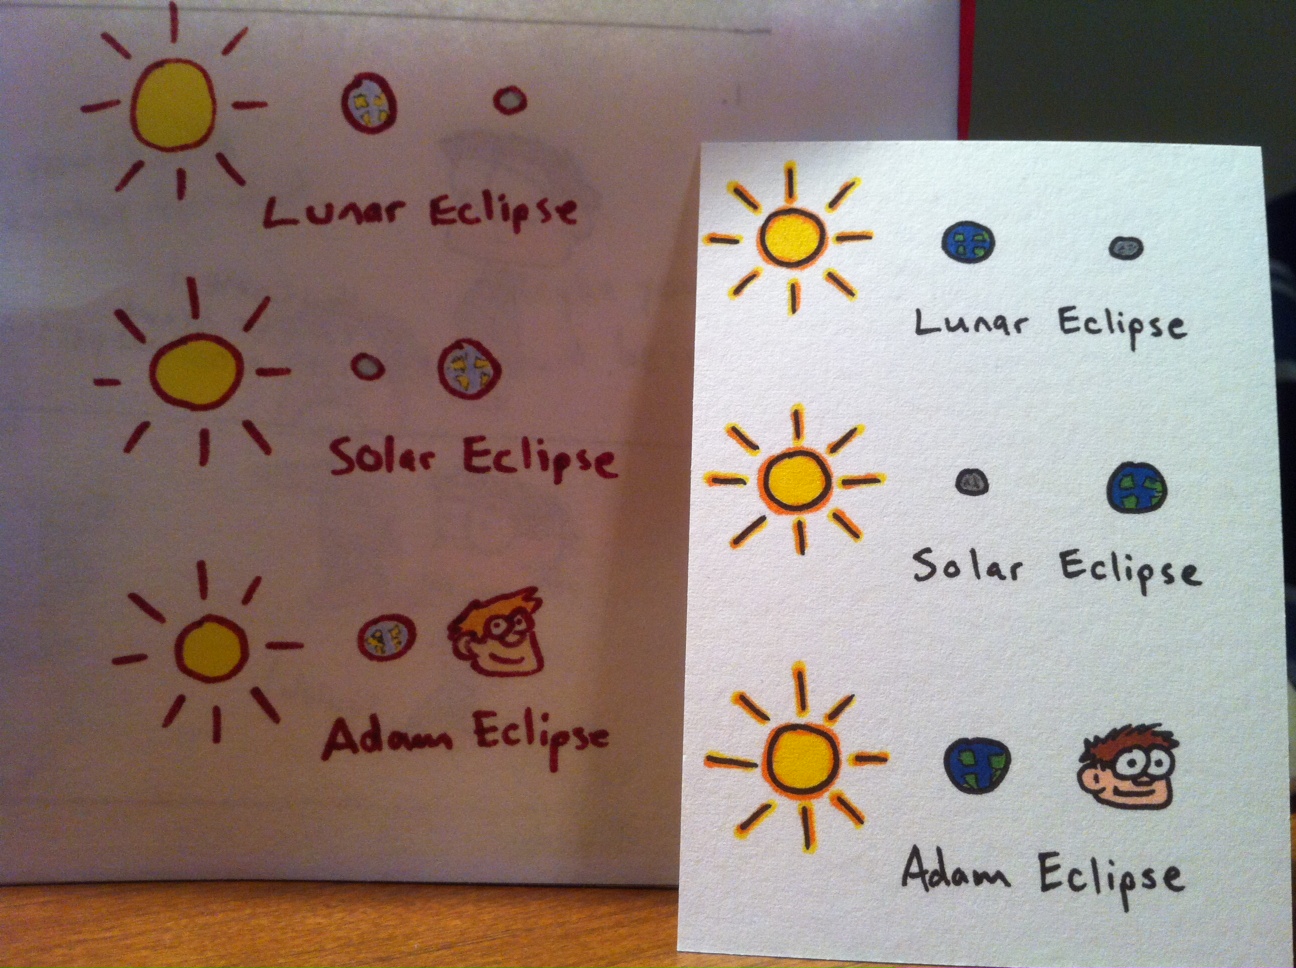 Lunar Eclipse
Solar Eclipse
Adam Eclipse
Lunar Eclipse
Solar Eclipse
Adam Eclipse